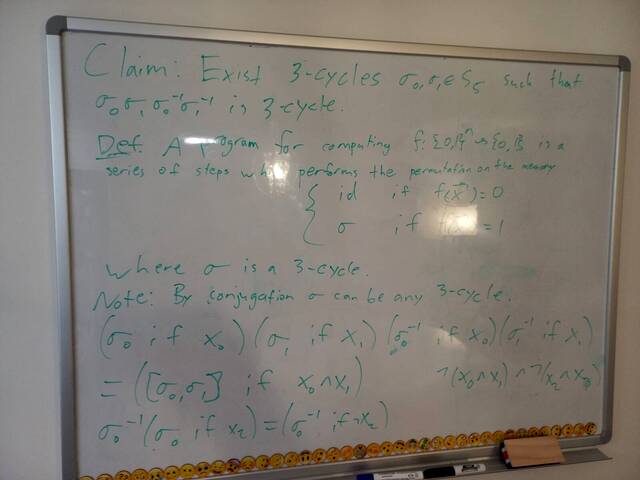 Claim: Exist 3-cycles σ₀, σ₁ ∈ S₅ such that
σ₀σ₁σ₀⁻¹σ₁⁻¹ is 3-cycle.
Def: A program for computing f: {0,1}ⁿ → {0,1} is a
series of steps which performs the permutation on the memory
{ id if f(x⃗)=0
σ if f(x⃗)=1
where σ is a 3-cycle.
Note: By conjugation σ can be any 3-cycle.
(σ₀ if x₀)(σ₁ if x₁)(σ₀⁻¹ if x₀)(σ₁⁻¹ if x₁)
= ([σ₀,σ₁] if x₀∧x₁) ¬(x₀∧x₁)∧¬(x₂∧x₃)
σ₀⁻¹(σ₀ if x₂)=(σ₀⁻¹ if ¬x₂)